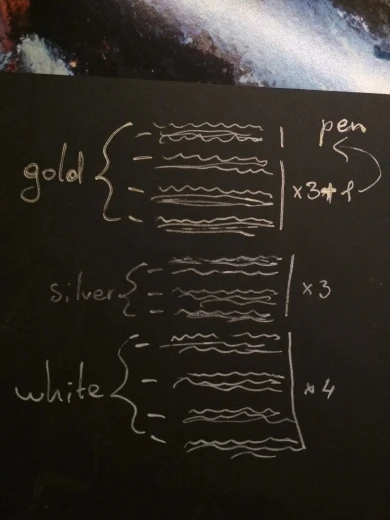 pen
gold
x3+1
silver
x3
white
x4